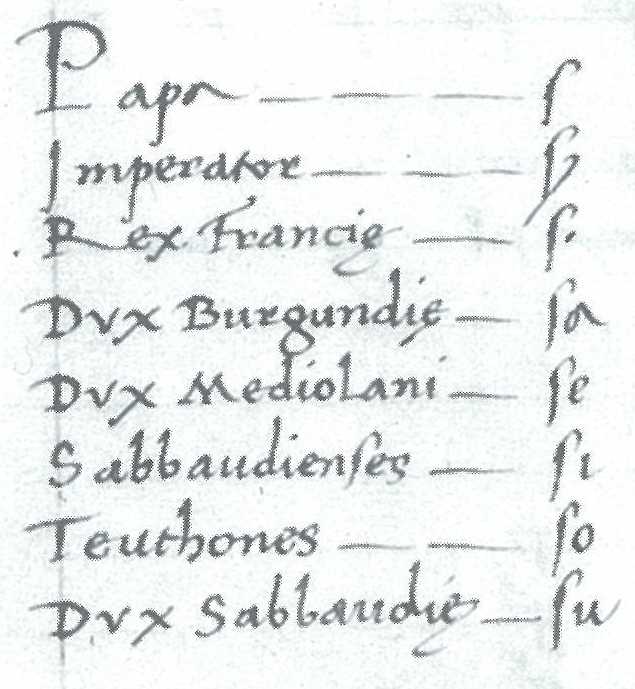 Papa — — — ſ
Imperator — — — ſꝫ
Rex Francię — ſ·
Dvx Burgundię — ſa
Dvx Mediolani — ſe
Sabbaudienſes — ſi
Teuthones — — ſo
Dvx Sabbaudię — ſu